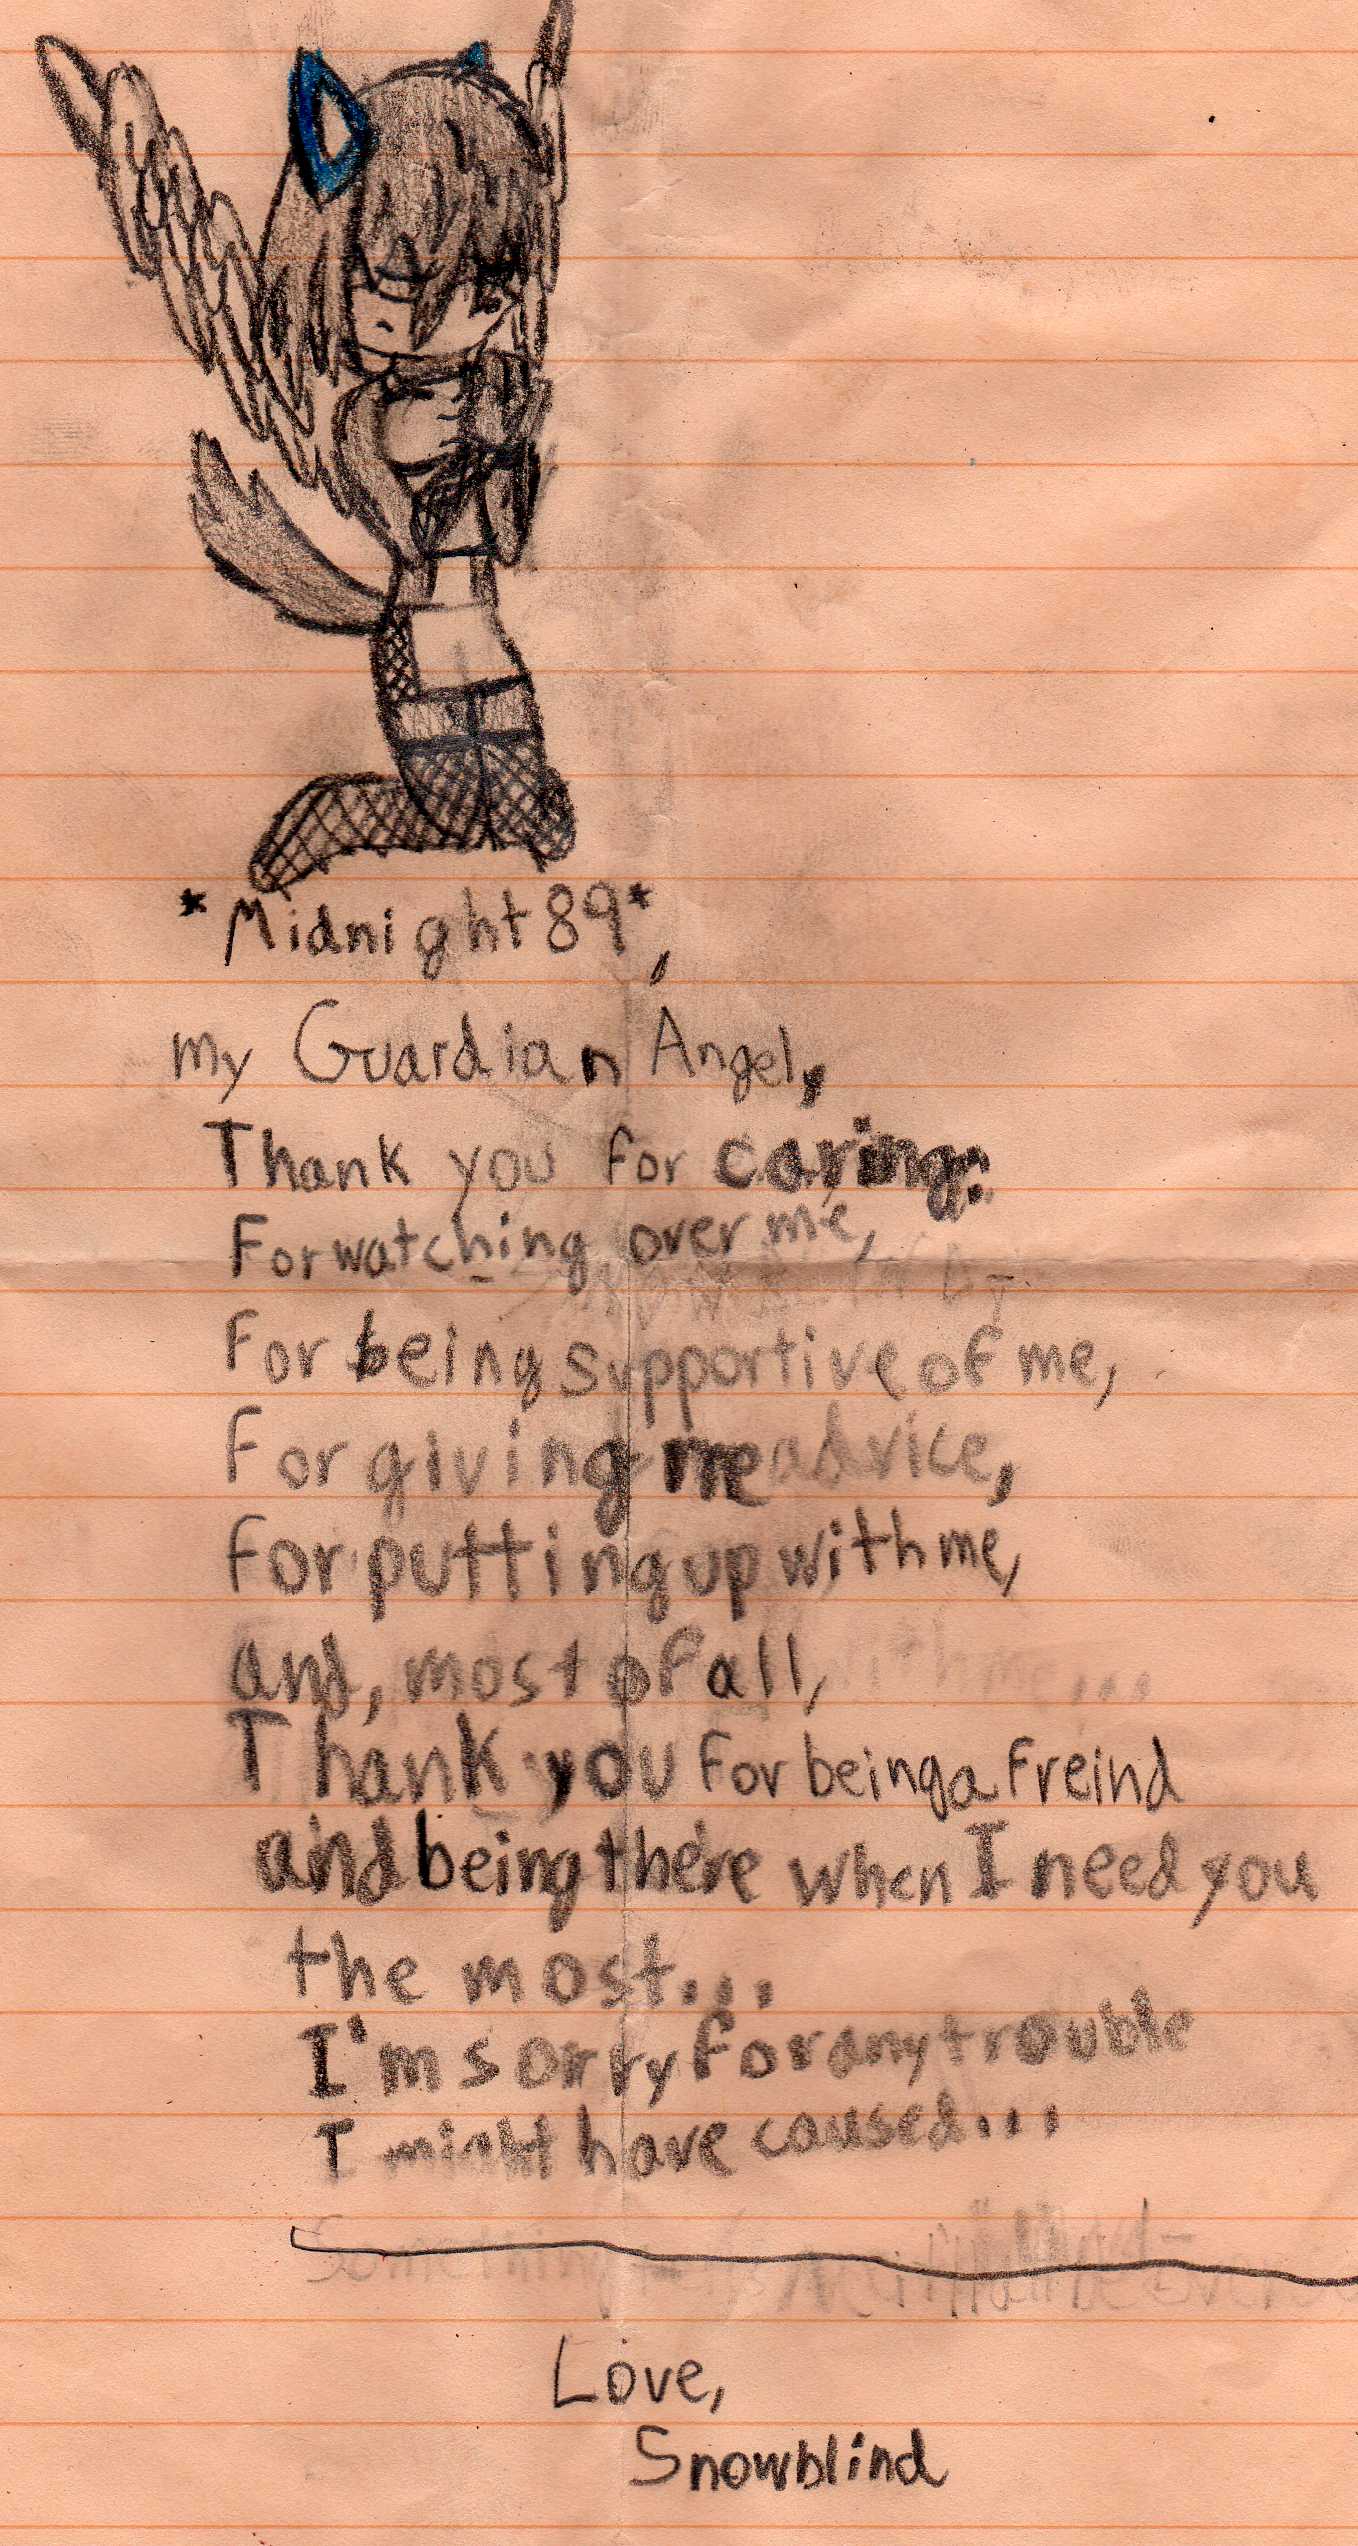 *Midnight89*,
my Guardian Angel,
Thank you for caring:
For watching over me,
For being supportive of me,
For giving me advice,
For putting up with me,
and, most of all,
Thank you for being a freind
and being there when I need you
the most...
I'm sorry for any trouble
I might have caused...
Love,
Snowblind